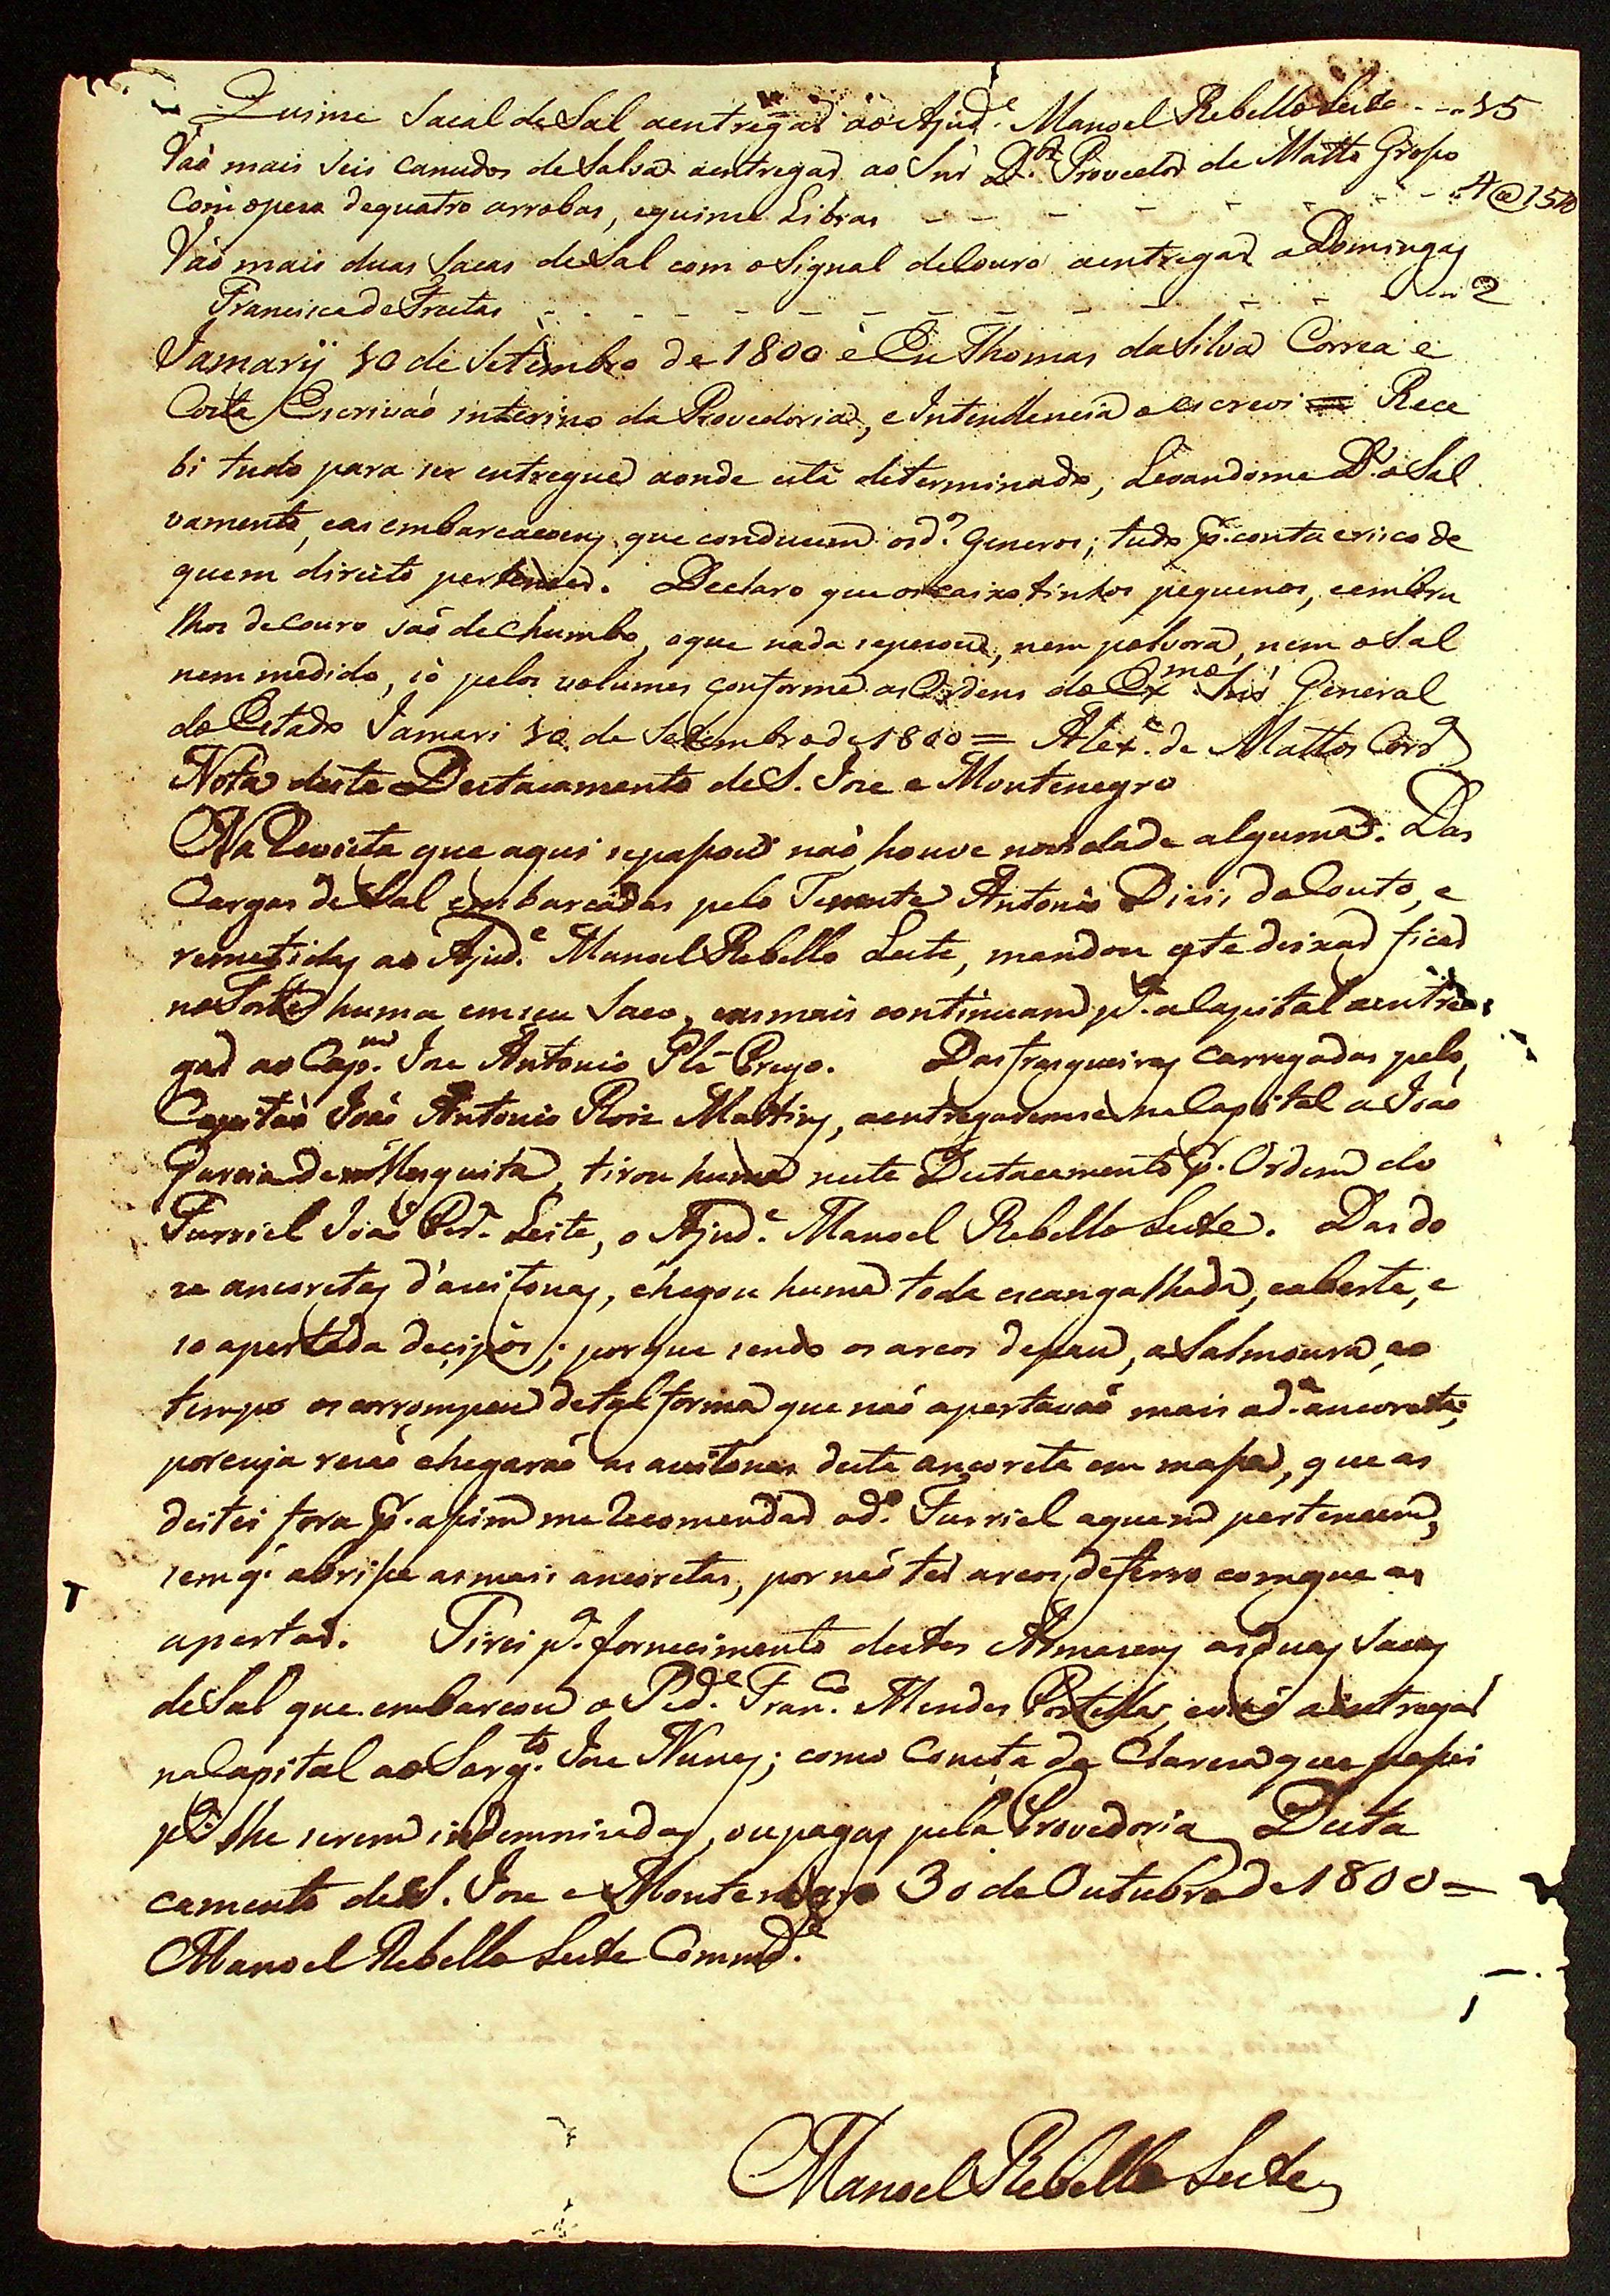 Quinze Sacas de Sal aentregar ao Ajud.e Manoel Rebello Leite - - 15
Vaõ mais seis canudos de Salsa aentregar ao Snr̃ D.or Provedor de Matto Groso
Com opeso dequatro arrobas, equinze Libras - - - - - - - 4@15 lb
Vaõ mais duas Sacas de Sal com o Signal deCouro aentregar a Domingas
Francisca de Freitas - - - - - - - - - - - - - 2
Jamary 10 de Setembro de 1800 e Eu Thomas daSilva Correa e
Costa Escrivaõ interino da Provedoria, e Intendencia o escrevi = Rece
bi tudo para ser entregue aonde está determinado, Levandome D.s a Sal
vamento, eas embarcaçoens que conduzem osd.os Generos; tudo p.r conta erisco de
quem direito pertencer. Declaro que os caixotinhos pequenos, eembru
lhos deCouro saõ deChumbo, oque nada sepezou, nem polvora, nem o Sal
nem medido, só pelos volumes conforme as Ordens do Ex.mo Snr̃ General
do Estado Jamari 10 de Setembro de 1800 = Alex.e de Mattos Cord.o
Nota deste Destacamento de S. Jozé e Montenegro
Na Revista que aqui sepasou naõ houve novidade alguma. Das
Cargas de Sal embarcadas pelo Tenente Antonio Diniz do Couto, e
remetidas ao Ajud.e Manoel Rebello Leite, mandou este deixar ficar
no Forte huma em seu Saco, easmais continuam p.a aCapital aentre
gar ao Cap.m Joze Antonio Prego. Das frasqueiras Carregadas pelo
Capitaõ Joaõ Antonio Roiz Martins, aentregaremse naCapital a Joaõ
Garcia de Mesquita, tirou huma neste Destacamento p.r Ordem do
Furriel Joaõ Per.a Leite, o Ajud.e Manoel Rebello Leite. Das do
ze ancoretas d'azeitonas, chegou huma toda escangalhada, eaberta, e
so apertada decipós; porque sendo os arcos depau, a Salmoura, eo
tempo os corrompeu detal forma que naõ apertavaõ mais ad.a ancoreta;
porcuja rezaõ chegaraõ as azeitonas desta ancoreta em masa, que as
deitei fora p.r asim me Recomendar od.o Furriel aquem pertencem,
sem q̃ abrise asmais ancoretas, por naõ ter arcos deferro comque as
apertar. Tirei p.a fornecimento destes Armazens asduas Sacas
deSal que embarcou o Fran.co Mendes Portellas, evaõ aentregar
naCapital ao Sarg.to Joze Nunes; como Consta da Clareza que pasei
p.a lhe serem indemnizadas, oupagas pela Provedoria Desta
camento deS. Joze e Montenegro 30 de Outubro de 1800 =
Manoel Rebello Leite Commd.e
Manoel Rebello Leite